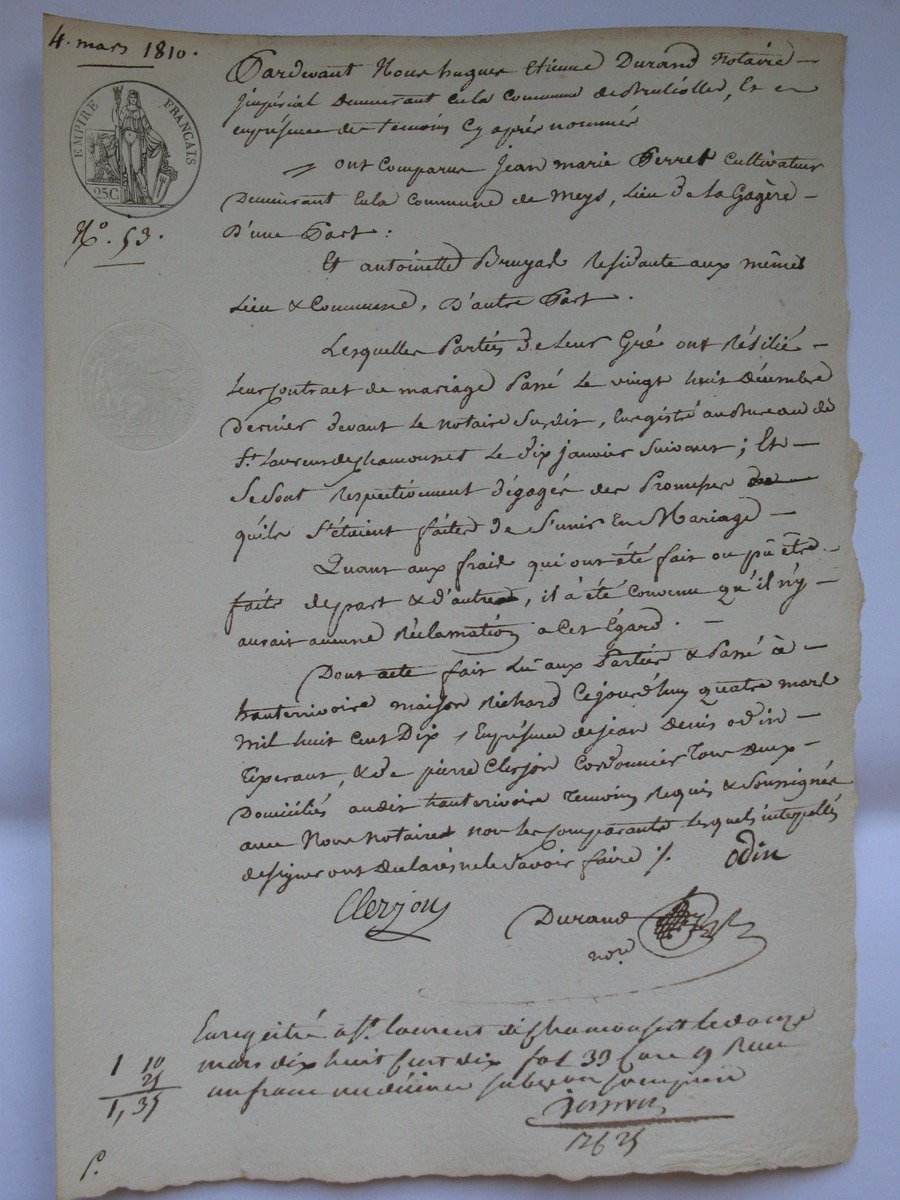 4. mars 1810.
EMPIRE FRANÇAIS
25C
N.º 53.
Pardevant Nous hugues Etienne Durand Notaire
Impérial Demeurant en la Commune de Brulliolles, Et en
en présence des temoins Cy après nommés
ont Comparus Jean marie Perret Cultivateur
Demeurant en la Commune de Meys, Lieu de La Gagère
D'une Part :
Et antoinette Bruyas Residante aux mêmes
Lieu & Commune, D'autre Part.
Lesquelles Parties de Leur Gré ont Résilié
leur contract de mariage Passé Le vingt huit Décembre
Dernier devant Le notaire Susdit, Enregistré au Bureau de
St. Laurent de chamousset Le Dix janvier Suivant ; Et
Se Sont Respectivement dégagés des Promesses
qu'ils S'étaient faites de S'unir En Mariage
Quant aux frais qui ont été fait ou pû être
faits de part & d'autre, il a été convenu qu'il n'y
aurait aucune Réclamation a Cet Egard.
Dont acte fait Lû aux Parties & Passé à
hauterivoire maison Richard Cejourd'huy quatre mars
Mil huit Cent Dix, En présence de jean Denis odin
Tixerant, & de pierre Clerjon Cordonnier Tous Deux
Domiciliés audit hauterivoire Temoins Requis & Soussignés
avec Nous Notaire non les comparants Lesquels interpellés
de signer ont Declarés ne le Savoir faire ./. odin
Clerjon
Durand
nore
Enregistré a St. laurent de chamousset le douze
mars dix huit cent dix fol 33 Case 9 Recu
un franc
1 10
25
1, 35